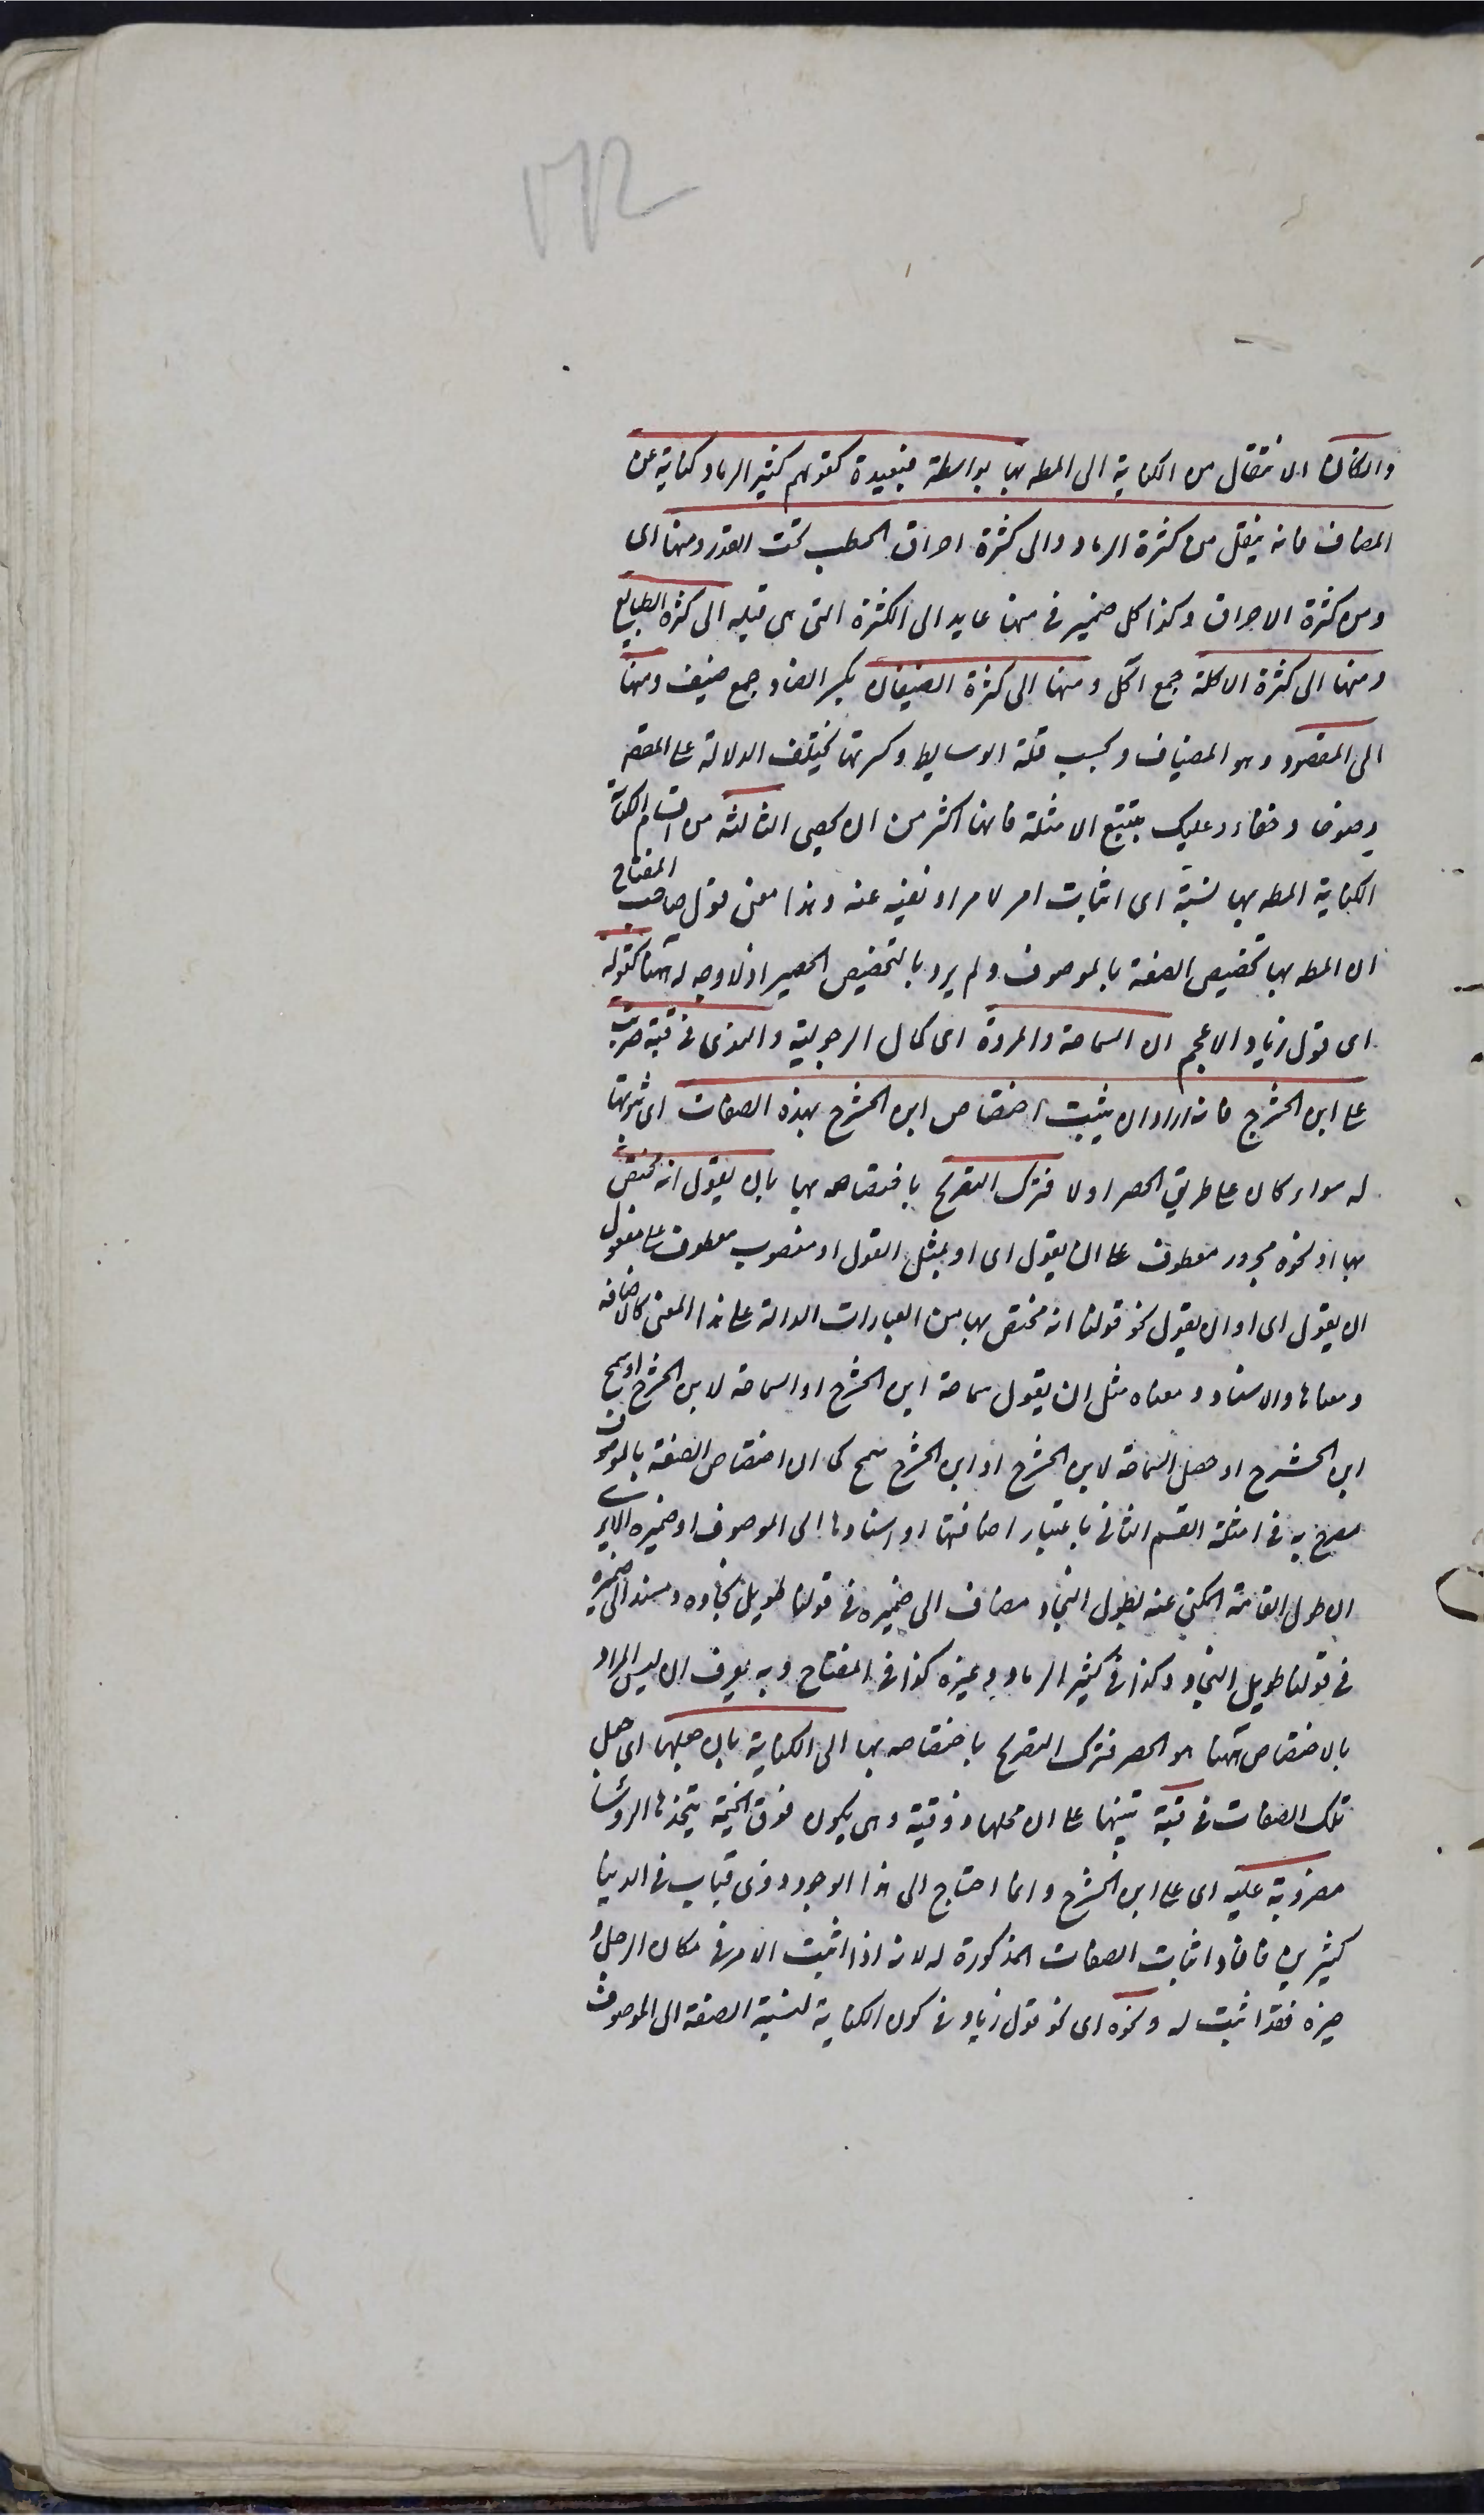 ١٧٢
وان كان الانتقال من الكناية الى المط بها بواسطة فبعيدة كقولهم كثير الرماد كناية عن
المضياف فانه ينتقل من كثرة الرماد والى كثرة احراق الحطب تحت القدر ومنها اى
ومن كثرة الاحراق وكذا كل ضمير فى منها عايد الى الكثرة التى هى قبله الى كثرة الطبايخ
ومنها الى كثرة الاكلة جمع آكل ومنها الى كثرة الضيفان بكسر الضاد جمع ضيف ومنها
الى المقصود وهو المضياف وبحسب قلة الوسايط وكثرتها تختلف الدلالة على المقصد
وضوحا وخفاء وعليك بتتبع الامثلة فانها اكثر من ان يحصى الثالثة من اقسام الكناية
الكناية المط بها نسبة اى اثبات امر لامر او نفيه عنه وهذا معنى قول صاحب المفتاح
ان المط بها تخصيص الصفة بالموصوف ولم يرد بالتخصيص الحصر اذ لا وجه له ههنا كقوله
اى قول زياد الاعجم ان السماحة والمروة اى كمال الرجولية والندى فى قبة ضربت
على ابن الحشرج فانه اراد ان يثبت اختصاص ابن الحشرج بهذه الصفات اى ثبوتها
له سواء كان على طريق الحصر او لا فترك التصريح باختصاصه بها بان يقول انه مختص
بها او نحوه مجرور معطوف على ان يقول اى او بمثل القول او منصوب معطوف على مفعول
ان يقول اى او ان يقول نحو قولنا انه مختص بها من العبارات الدالة على هذا المعنى كالاضافة
ومعناها والاسناد ومعناه مثل ان يقول سماحة ابن الحشرج او السماحة لابن الحشرج او سمح
ابن الحشرج او حصل السماحة لابن الحشرج او ابن الحشرج سمح كما ان اختصاص الصفة بالموصوف
مصرح به فى امثلة القسم الثانى باعتبار اضافتها او اسنادها الى الموصوف او ضميره الا يرى
ان طول القامة المكنى عنه بطول النجاد مضاف الى ضميره فى قولنا طويل نجاده ومسند الى ضميره
فى قولنا طويل النجاد وكذا فى كثير الرماد وغيره كذا فى المفتاح وبه يعرف ان ليس المراد
بالاختصاص ههنا هو الحصر فترك التصريح باختصاصه بها الى الكناية بان جعلها اى جعل
تلك الصفات فى قبة تنبيها على ان محلها ذو قبة وهى يكون فوق الخيمة يتخذها الروساء
مضروبة عليه اى على ابن الحشرج وانما احتاج الى هذا لوجود ذوى قباب فى الدنيا
كثيرين فافاد اثبات الصفات المذكورة له لانه اذا اثبت الامر فى مكان الرجل و
حيزه فقد اثبت له ونحوه اى نحو قول زياد فى كون الكناية لنسبة الصفة الى الموصوف